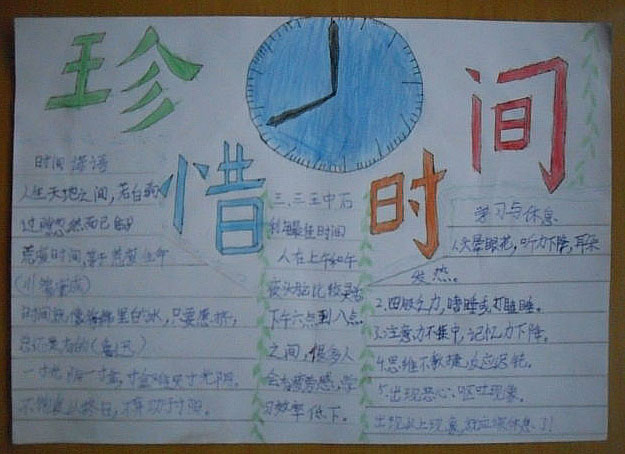 珍惜时间
时间谚语
人生天地之间，若白驹
过隙忽然而已
荒废时间等于荒废生命
时间就像海绵里的水，只要愿挤，
总还是有的（鲁迅）
一寸光阴一寸金，寸金难买寸光阴。
利用最佳时间
人在上午和午
下午六点到八点
之间，很多人
会有疲劳感，学
习效率低下。
学习与休息
1.头晕眼花，听力下降，耳朵
发热。
2.四肢乏力，嗜睡或打瞌睡。
3.注意力不集中，记忆力下降。
4.思维不敏捷，反应迟钝。
5.出现恶心、呕吐现象。
出现以上现象，就应该休息了！